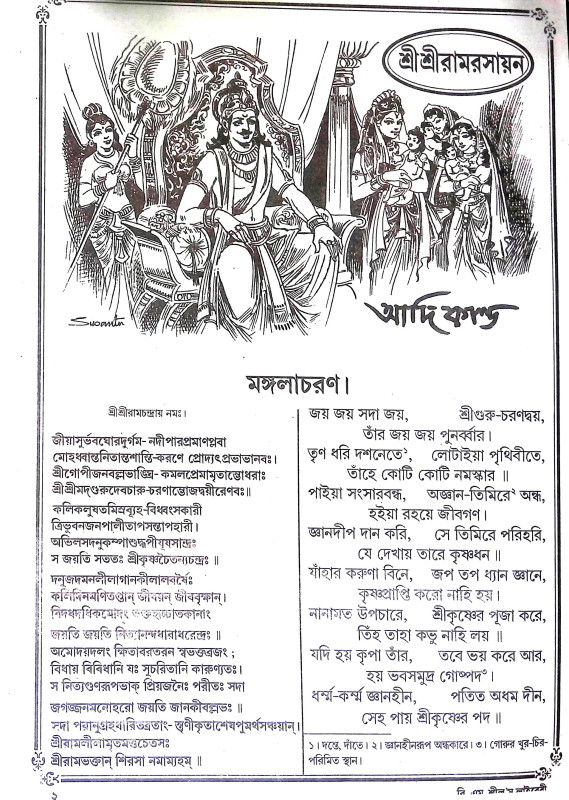 শ্রীশ্রীরামরসায়ন
Susanta
আদি কাণ্ড
মঙ্গলাচরণ।
শ্রীশ্রীরামচন্দ্রায় নমঃ।
জীয়াসুর্ভবঘোরদুর্গম- নদীপারপ্রমাণপ্লবা
মোহধ্বান্তনিতান্তশান্তি-করণে প্রোদ্যৎপ্রভাভানবঃ।
শ্রীগোপীজনবল্লভাঙ্ঘ্রি- কমলপ্রেমামৃতাম্ভোধরাঃ
শ্রীশ্রীমদ্গুরুদেবচারু-চরণাম্ভোজদ্বয়ীরেণবঃ॥
কলিকলুষতমিস্রব্যূহ-বিধ্বংসকারী
ত্রিভুবনজনপালীতাপসন্তাপহারী।
অভিলসদনুকম্পাশুদ্ধপীযূষসান্দ্রঃ
স জয়তি সততং শ্রীকৃষ্ণচৈতন্যচন্দ্রঃ॥
দনুজদমনলীলাগানকীলালবর্ষৈঃ
কলিদিনমণিতপ্তান্ জীবয়ন্ জীববৃক্ষান্।
জয়তি জয়তি নিত্যানন্দধারাধরেন্দ্রঃ॥
অমোদয়দলং ক্ষিতাবরতরন স্বভক্তব্রজং;
বিধায় বিবিধানি যঃ সুচরিতানি কারুণ্যতঃ।
স নিত্যগুণরূপভাক্ প্রিয়জনৈঃ পরীতঃ সদা
জগজ্জনমনোহরো জয়তি জানকীবল্লভঃ॥
সদা পরানুগ্রহধারিতব্রতাং- স্তৃণীকৃতাশেষপুমর্থসঞ্চয়ান্।
শ্রীরামলীলামৃতমত্তচেতসঃ
শ্রীরামভক্তান্ শিরসা নমাম্যহম্॥
জয় জয় সদা জয়, শ্রীগুরু-চরণদ্বয়,
তাঁর জয় জয় পুনর্ব্বার।
তৃণ ধরি দশনেতে১, লোটাইয়া পৃথিবীতে,
তাঁহে কোটি কোটি নমস্কার॥
পাইয়া সংসারবন্ধ, অজ্ঞান-তিমিরে২ অন্ধ,
হইয়া রহয়ে জীবগণ।
জ্ঞানদীপ দান করি, সে তিমিরে পরিহরি,
যে দেখায় তারে কৃষ্ণধন॥
যাঁহার করুণা বিনে, জপ তপ ধ্যান জ্ঞানে,
কৃষ্ণপ্রাপ্তি করো নাহি হয়।
নানামত উপচারে, শ্রীকৃষ্ণের পূজা করে,
তিঁহ তাহা কভু নাহি লয়॥
যদি হয় কৃপা তাঁর, তবে ভয় করে আর,
হয় ভবসমুদ্র গোষ্পদ৩।
ধর্ম্ম-কর্ম্ম জ্ঞানহীন, পতিত অধম দীন,
সেহ পায় শ্রীকৃষ্ণের পদ॥
১। দন্তে, দাঁতে। ২। জ্ঞানহীনরূপ অন্ধকারে। ৩। গোরুর খুর-চির-
পরিমিত স্থান।
২